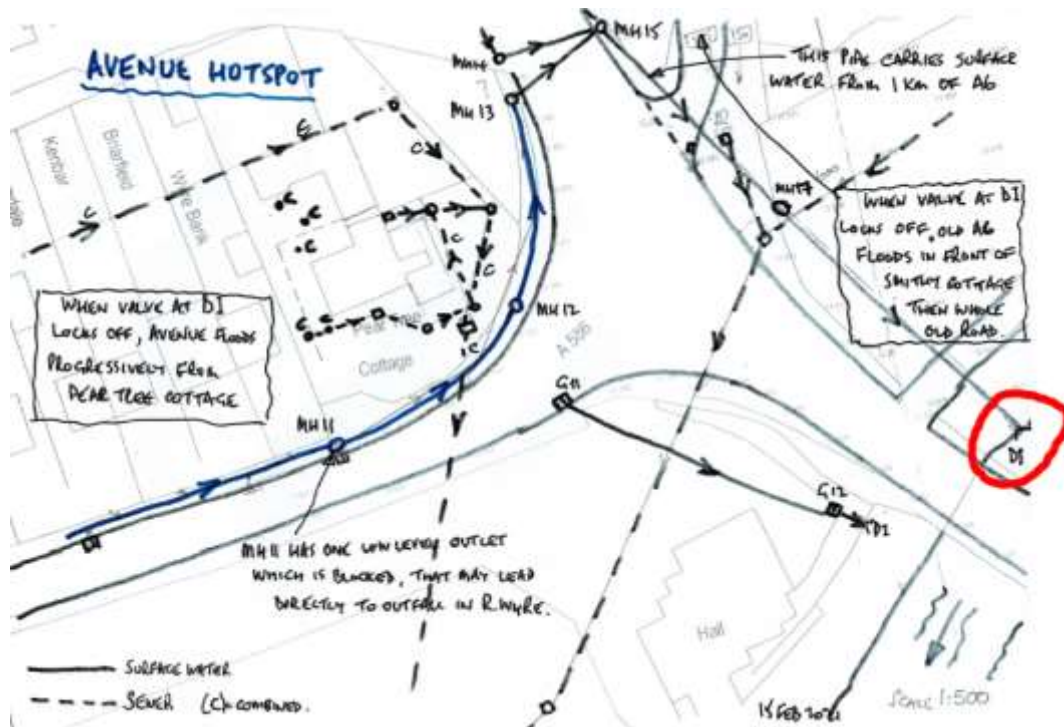 AVENUE HOTSPOT
MH15
MH14
MH13
THIS PIPE CARRIES SURFACE
WATER FROM 1 KM OF A6
Kenbar
Briarfield
Wyre Bank
C
C
C
C
C
C
C
C
C
MH17
WHEN VALVE AT D1
LOCKS OFF, OLD A6
FLOODS IN FRONT OF
SMITHY COTTAGE
THEN WHOLE
OLD ROAD.
WHEN VALVE AT D1
LOCKS OFF, AVENUE FLOODS
PROGRESSIVELY FROM
PEAR TREE COTTAGE
Pear Tree
Cottage
MH12
A 586
G11
MH11
D1
G12
MH11 HAS ONE LOW LEVEL OUTLET
WHICH IS BLOCKED, THAT MAY LEAD
DIRECTLY TO OUTFALL IN R. WYRE.
Hall
SURFACE WATER
SEWER (C)=COMBINED.
15 FEB 2021
SCALE 1:500